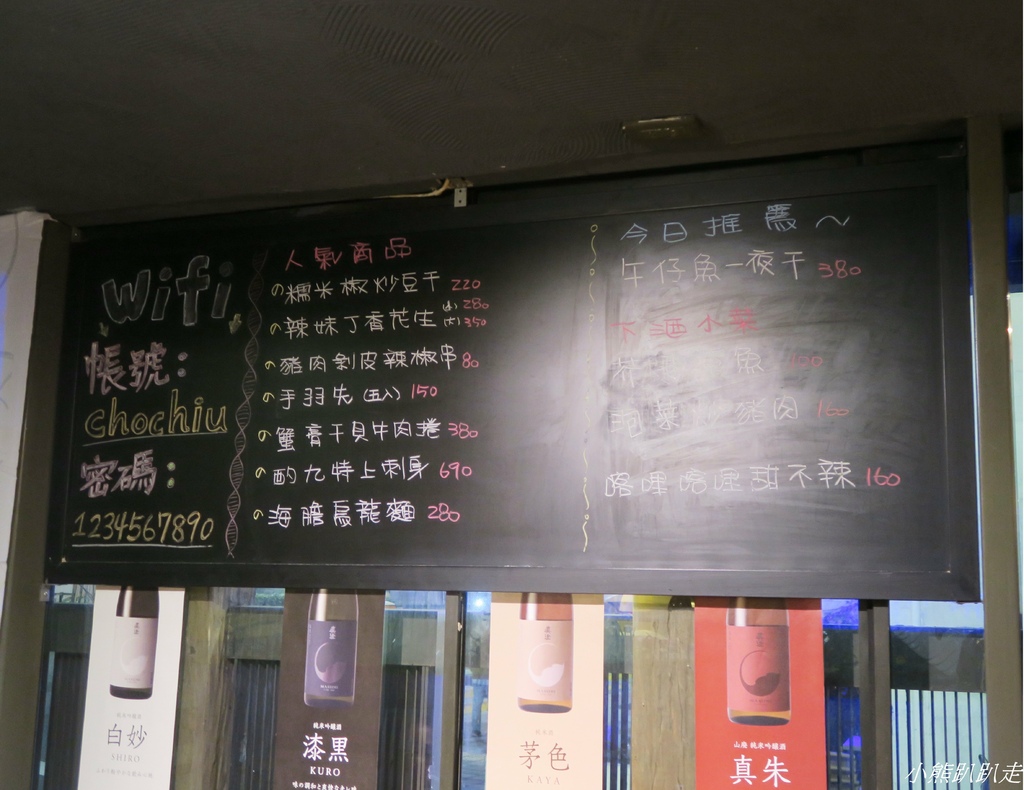 Wifi
帳號:
chochiu
密碼:
1234567890
人氣商品
糯米椒炒豆干 220
辣妹丁香花生 (小)280 (大)350
豬肉剝皮辣椒串 80
手羽先(五入) 150
蟹膏干貝牛肉捲 380
酌九特上刺身 690
海膽烏龍麵 280
今日推薦~
午仔魚一夜干 380
下酒小菜
魚 100
泡菜 豬肉 160
咯哩咯哩甜不辣 160
白妙
SHIRO
純米吟醸酒
漆黒
KURO
茅色
KAYA
山廃 純米吟醸酒
真朱
小熊趴趴走